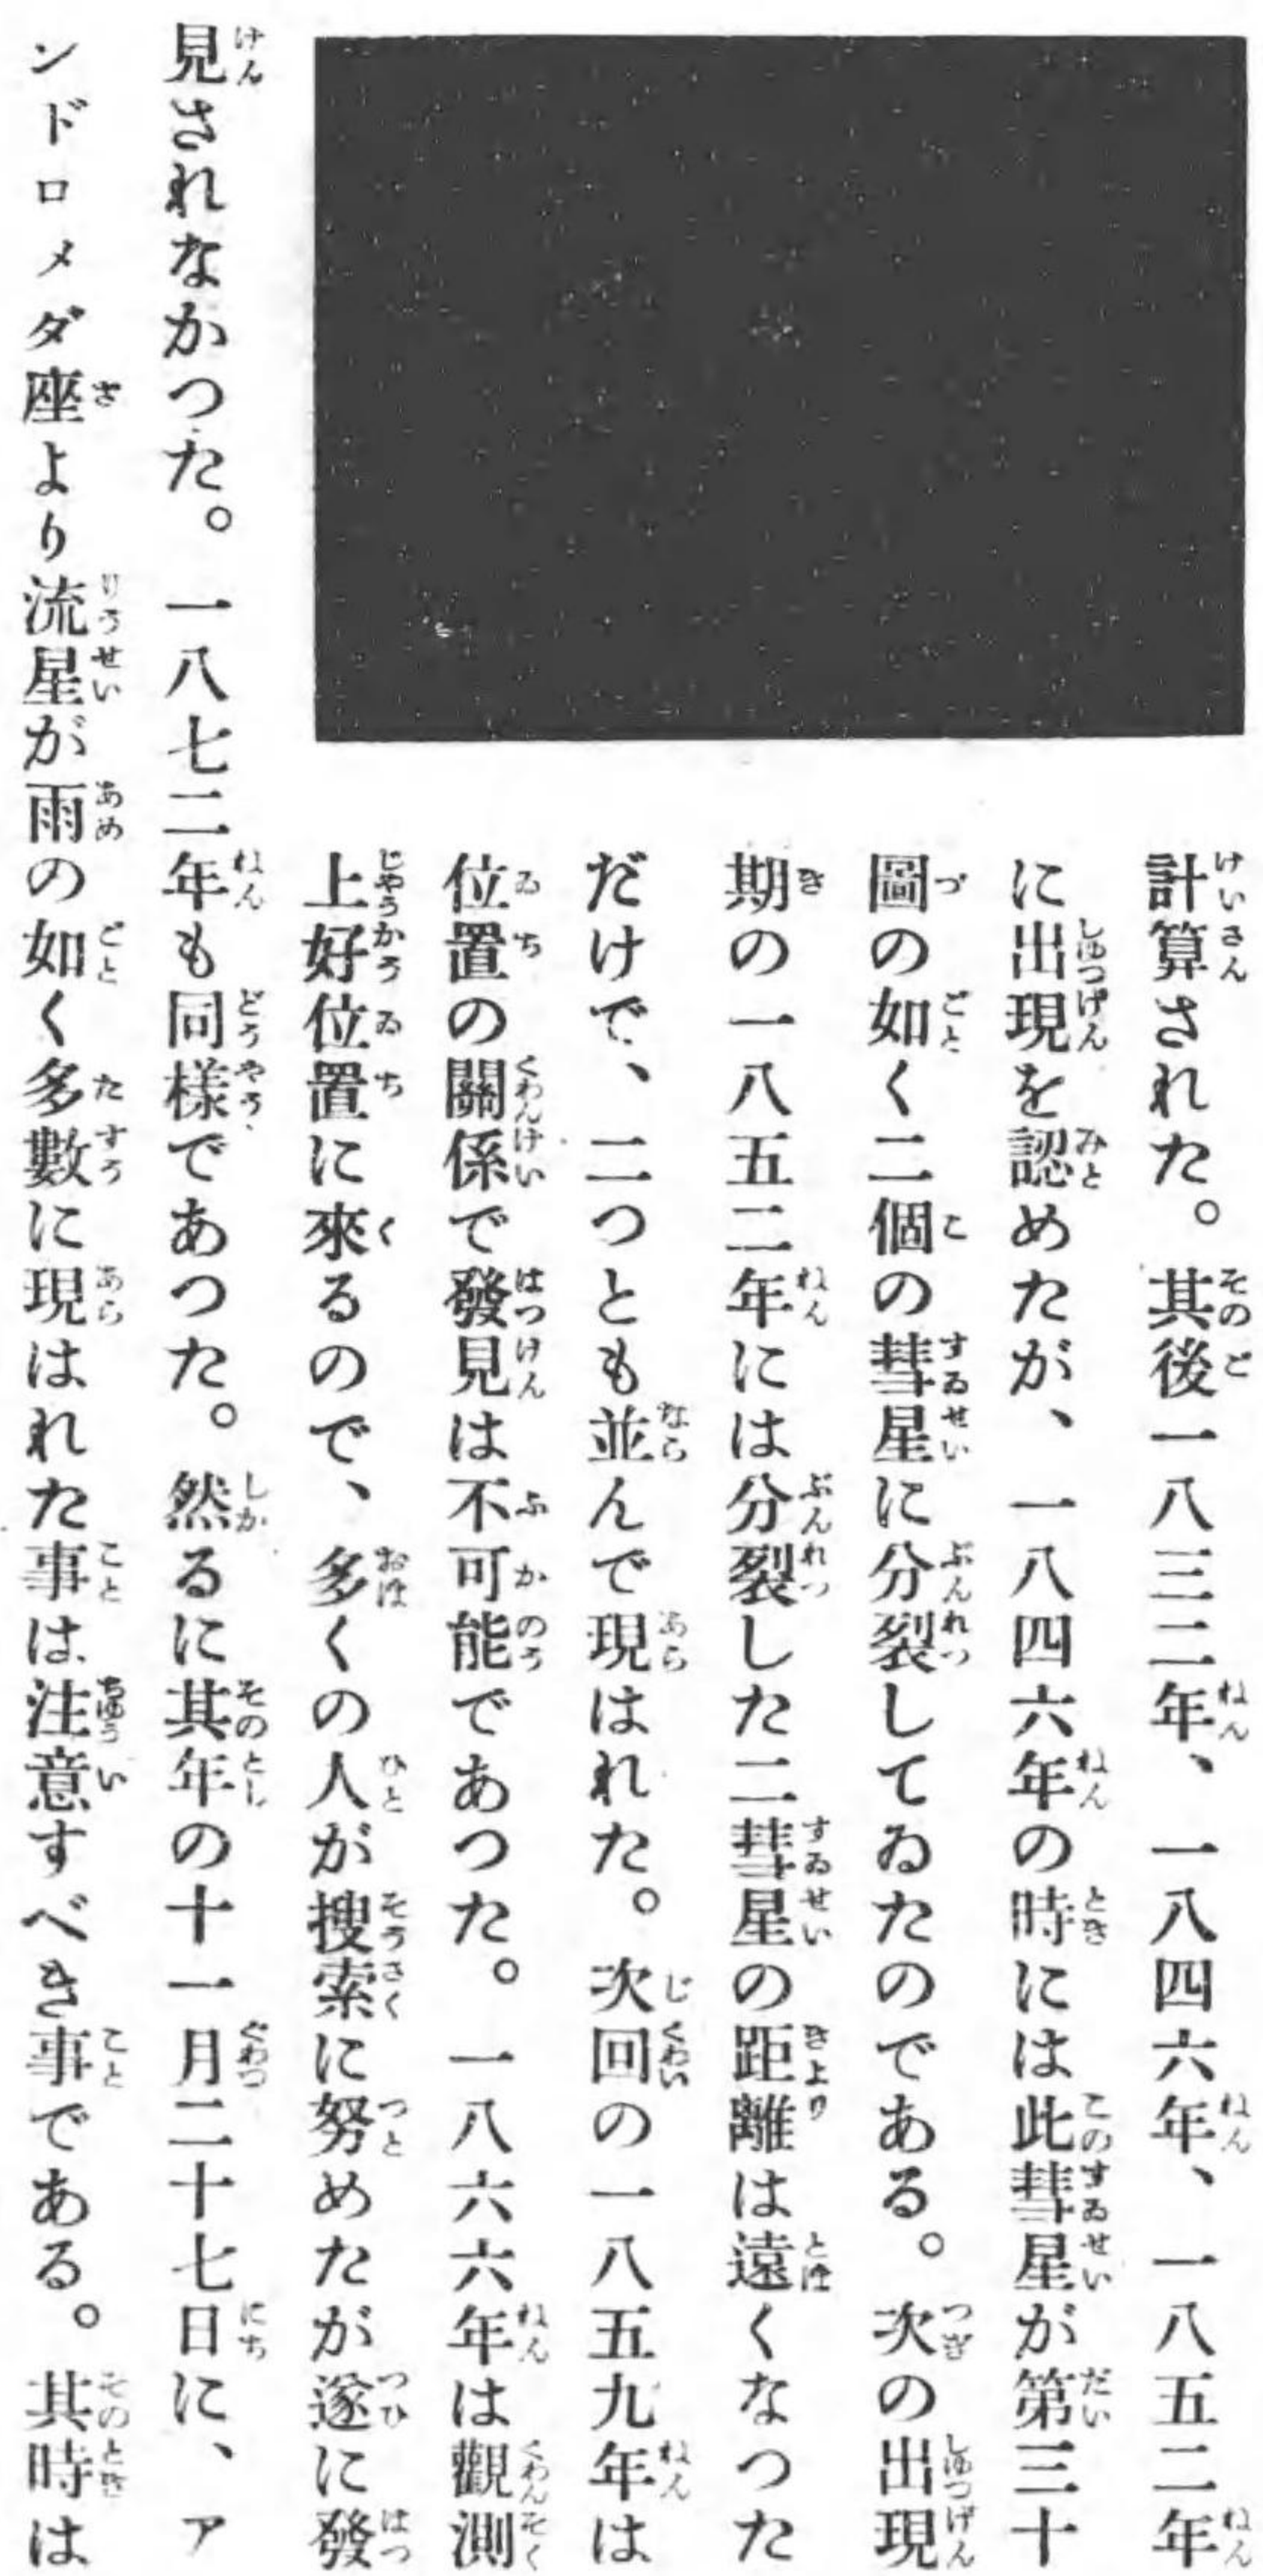 計算された。其後一八三二年、一八四六年、一八五二年
に出現を認めたが、一八四六年の時には此彗星が第三十
圖の如く二個の彗星に分裂してゐたのである。次の出現
期の一八五二年には分裂した二彗星の距離は遠くなつた
だけで、二つとも並んで現はれた。次回の一八五九年は
位置の關係で發見は不可能であつた。一八六六年は觀測
上好位置に來るので、多くの人が搜索に努めたが遂に發
見されなかつた。一八七二年も同樣であつた。然るに其年の十一月二十七日に、ア
ンドロメダ座より流星が雨の如く多數に現はれた事は注意すべき事である。其時は